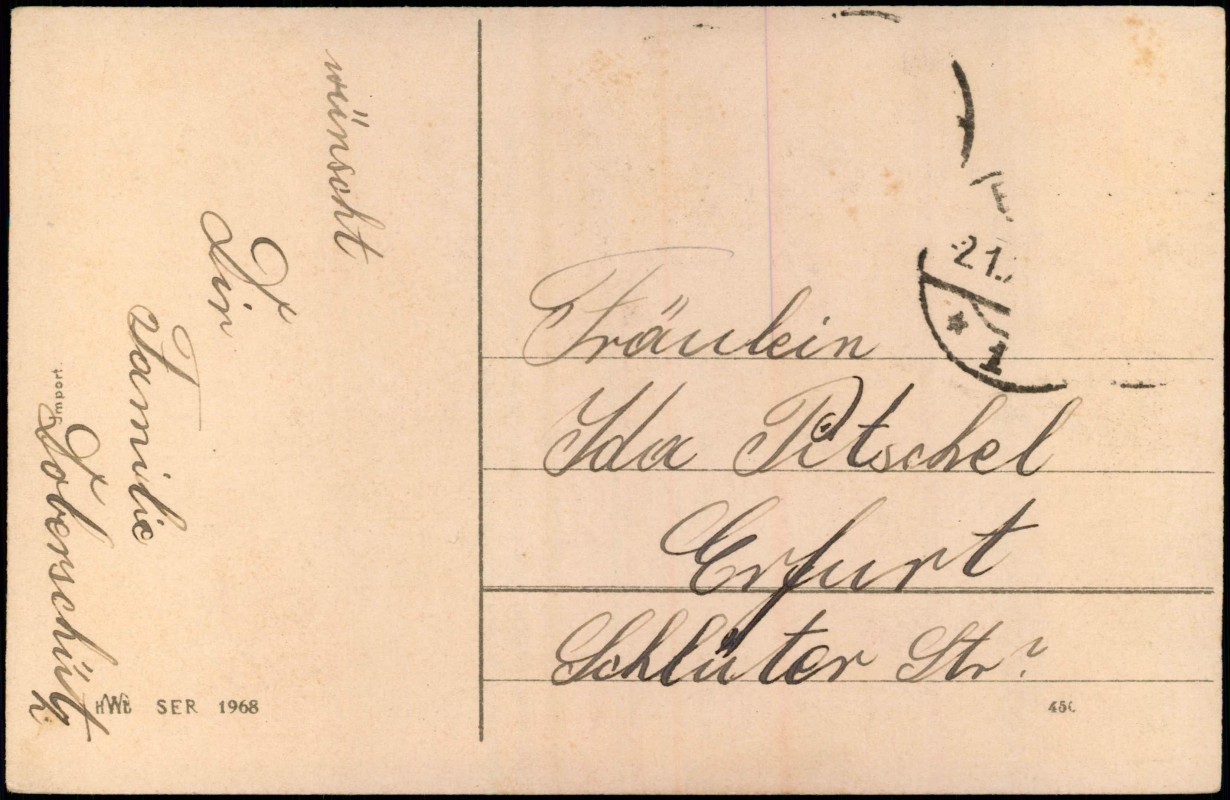 wünscht
Dir
Familie
Doberschütz
Import.
HWB SER 1968
Fräulein
Ida Pitschel
Erfurt
Schlüter Str?
21.
* 1